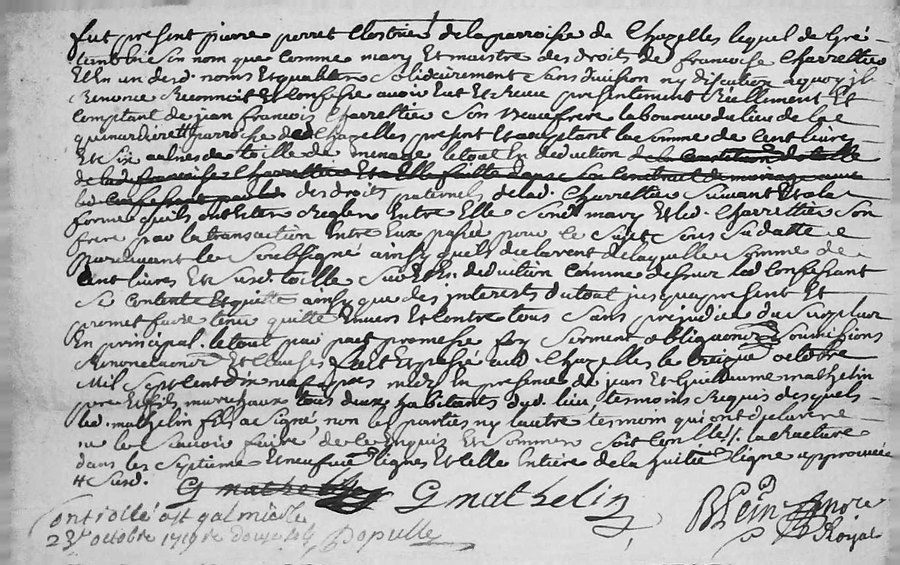 fut présent pierre perret Clostrier de la parroisse de Chazelles lequel de gré
tant en son nom que comme mary Et maistre des droits de francoise Charrettier
Et En un desd. noms Et qualites solidairement sans division ny discution a quoy il
Renonce Reconnoit Et Confesse avoir Eut Et Receu presentement Réellement Et
Comptant de jean francois Charrettier son beau frere laboureur du lieu de la
parroisse dud. Chazelles present Et acceptant la somme de Cent livres
Et six aulnes de toille de menage le tout En deduction de la Constitution dotalle
de lad. francoise Charrettier Et a Elle faitte dans son Contract de mariage avec
led. Confessant des droits paternels de lad. Charrettier suivant Et a la
forme quils ont Eté Regles Entre Elle sond. mary Et led. Charrettier son
frere par la transaction Entre Eux passée pour ce sujet sous sa datte
pardevant le soubsigné ainsy quils declarent de laquelle somme de
Cent livres Et susd. toille En deduction Comme dessus led. Confessant
se Contente Et quitte ainsy que des interests du tout jusqua present Et
promet faire tenir quitte Envers Et Contre tous sans prejudice du surplus
En principal. le tout par pact promesse foy serment obligaons soumissions
Renonciaons Et clauses fait Et passé aud. Chazelles le octobre
Mil sept Cent dix neuf apres midy En presence de jean Et Guillaume mathelin
pere Et fils marechaux tous deux habitants dud. lieu tesmoins Requis desquels
led. mathelin fils a signé non les parties ny lautre tesmoin qui ont declaré
ne le scavoir faire de ce Enquis Et sommés soit Controllé //. la Racture
dans les septieme Et neufvieme lignes Et celle Entiere de la huitie ligne approuvée
# susd. G mathelin G mathelin
Controllé a St galmier le
23e octobre 1719 Re douze sols Populle
Royal